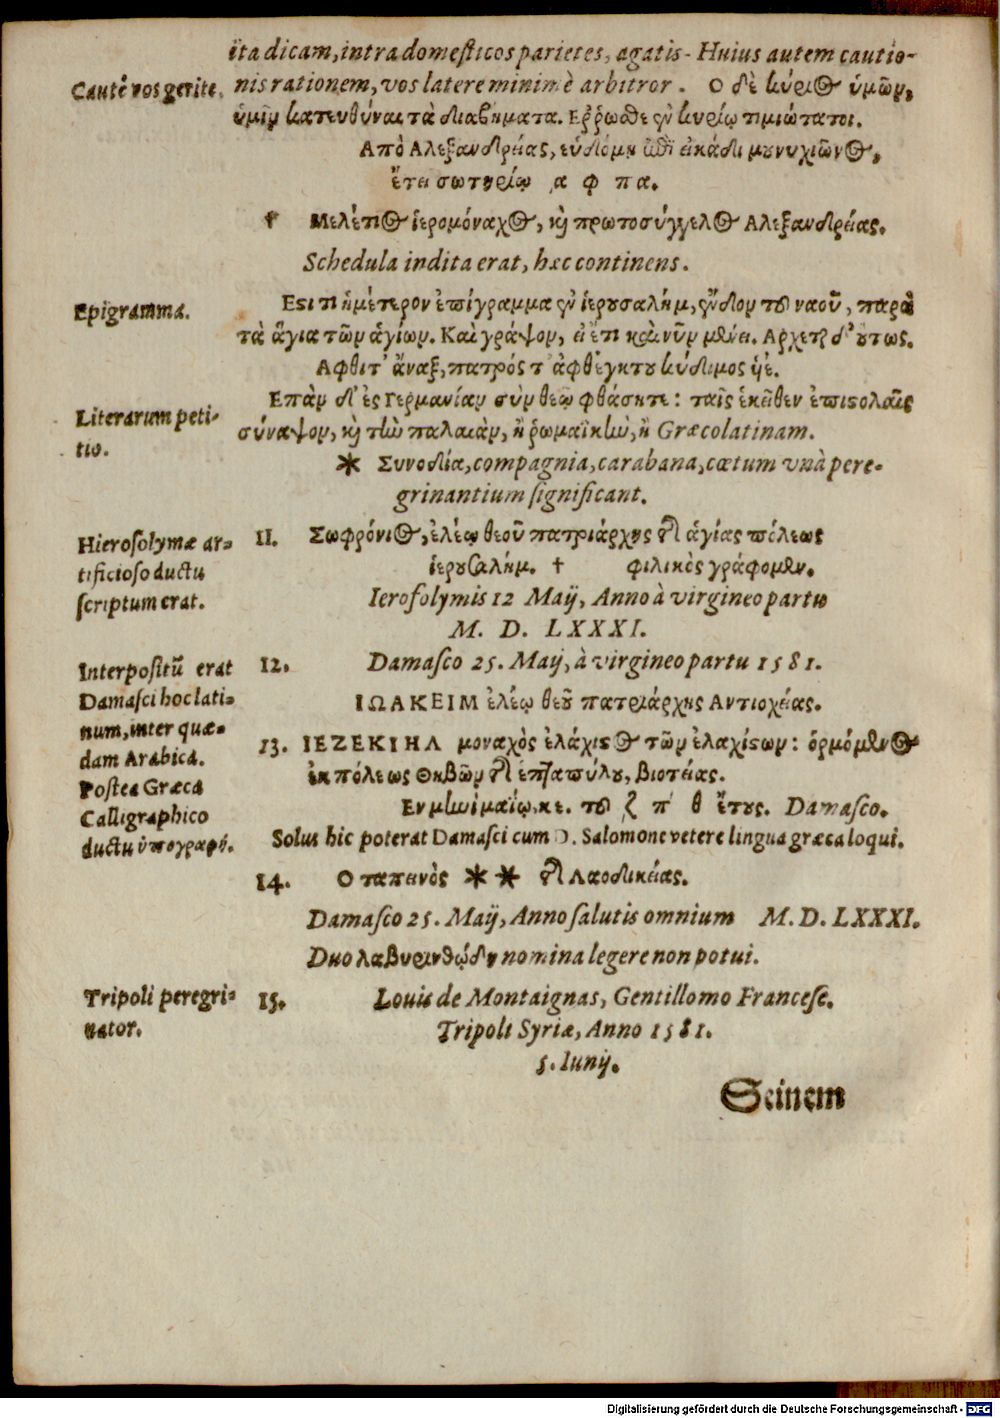 ita dicam, intra domesticos parietes, agatis- Huius autem cautio-
Cautè vos gerite.
nis rationem, vos latere minimè arbitror. Ο δὲ κύριος ὑμῶν,
ὑμῖν κατευθύναι τὰ διαβήματα. Εῤῥωσθε ἐν κυρίῳ τιμιώτατοι.
Απὸ Αλεξανδρείας, εὐδόμῃ ἐπὶ εἰκάδι μουνυχιῶνος,
ἔτει σωτηρίῳ α φ π α.
† Μελέτιος ἱερομόναχος, κὶ πρωτοσύγγελος Αλεξανδρείας.
Schedula indita erat, hæc continens.
Epigramma.
Εςι τι ἡμέτερον ἐπίγραμμα ἐν ἱερουσαλήμ, ἔνδον τοῦ ναοῦ, παρὰ
τὰ ἅγια τῶν ἁγίων. Καὶ γράψον, εἰ ἔτι καὶ νῦν μένει. Αρχεται δ' οὕτως.
Αφθιτ' ἄναξ, πατρός τ' ἀφθέγκτου κύδιμος ὑέ.
Literarum peti-
tio.
Επὰν δ' ἐς Γερμανίαν σὺν θεῷ φθάσητε: ταῖς ἐκεῖθεν ἐπιςολαῖς
σύναψον, κὶ τὴν παλαιὰν, ἢ ῥωμαϊκὴν, ἢ Græcolatinam.
* Συνοδία, compagnia, carabana, cœtum vnà pere-
grinantium significant.
Hierosolymæ ar-
tificioso ductu
scriptum erat.
11. Σωφρόνιος, ἐλέῳ θεοῦ πατριάρχης τῆς ἁγίας πόλεως
ἱερουσαλήμ. † φιλικὸς γράφομεν.
Ierosolymis 12 Maij, Anno à virgineo partu
M. D. LXXXI.
Interpositũ erat
Damasci hoc lati-
num, inter quæ-
dam Arabica.
Postea Græca
Calligraphico
ductu ὑπογραφή.
12. Damasco 25. Maij, à virgineo partu 1581.
ΙΩΑΚΕΙΜ ἐλέῳ θεοῦ πατριάρχης Αντιοχείας.
13. ΙΕΖΕΚΙΗΛ μοναχὸς ἐλάχιςος τῶν ἐλαχίςων: ὁρμόμενος
ἐκ πόλεως Θηβῶν τῆς ἑπταπύλου, βιοτείας.
Εν μηνὶ μαΐῳ, κε. τοῦ ζ π θ ἔτους. Damasco.
Solus hic poterat Damasci cum D. Salomone vetere lingua græca loqui.
14. Ο ταπεινὸς * * τῆς Λαοδικείας.
Damasco 25. Maij, Anno salutis omnium M. D. LXXXI.
Duo λαβυρινθώδη nomina legere non potui.
Tripoli peregri-
nator.
15. Louis de Montaignas, Gentillomo Francese.
Tripoli Syriæ, Anno 1581.
5. Iunij.
Seinem
Digitalisierung gefördert durch die Deutsche Forschungsgemeinschaft - DFG